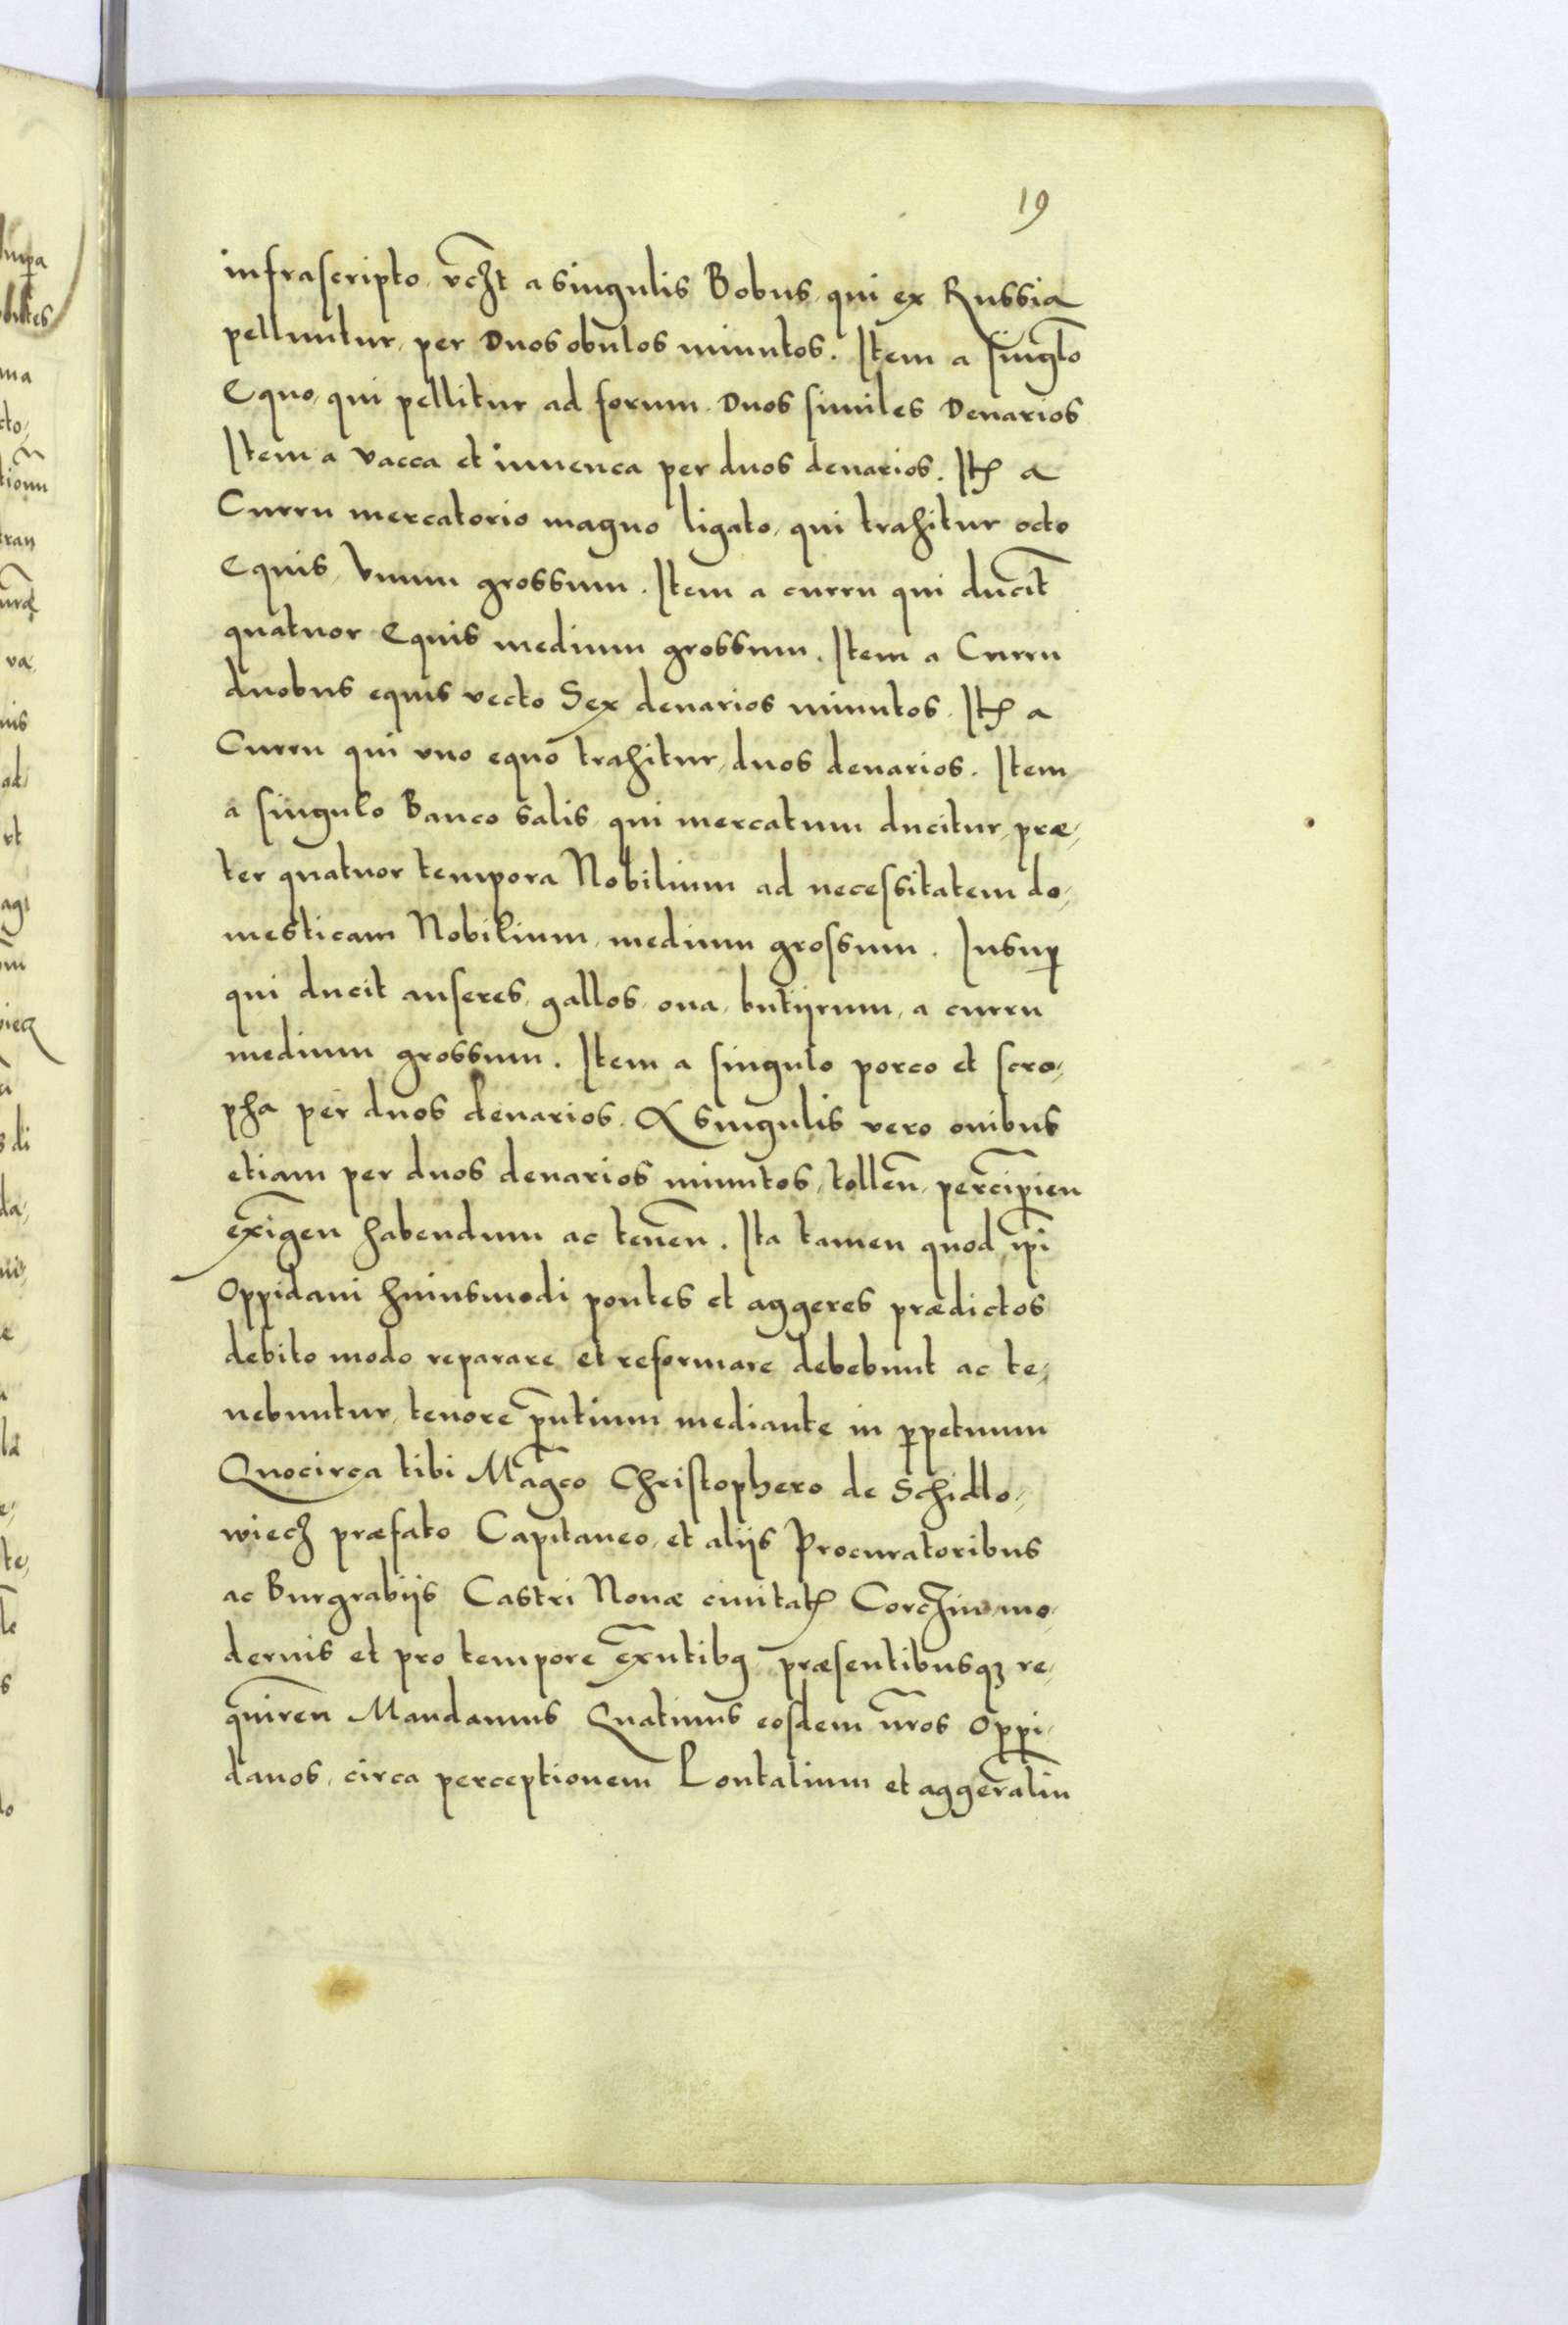 19
infrascripto, vczt a singulis Bobus, qui ex Russia
pelluntur, per Duos obulos minutos. Item a singlo
Equo, qui pellitur ad forum. Duos similes Denarios
Item a vacca et iuuenca per duos denarios. Itē a
Curru mercatorio magno ligato, qui trahitur octo
Equis, Vnum grossum. Item a curru qui ducit̄
quatuor Equis medium grossum. Item a Curru
duobus equis vecto Sex denarios minutos. Itē a
Curru qui vno equo trahitur, duos denarios. Item
a singulo Banco salis, qui mercatum ducitur, præ,
ter quatuor tempora Nobilium ad necessitatem do,
mesticam Nobilium, medium grossum. Insuꝑ
qui ducit anseres, gallos, oua, butijrum, a curru
medium grossum. Item a singulo porco et scro,
pha per duos denarios. A singulis vero ouibus
etiam per duos denarios minutos, tolleñ, percipien
exigen habendum ac teneñ. Ita tamen quod ip̄i
Oppidani huiusmodi pontes et aggeres prædictos
debito modo reparare et reformare debebunt ac te,
nebuntur, tenore p̄ntium mediante in ꝑpetuum
Quocirca tibi Mag̃co Christophero de Schidlo,
wiecz præfato Capitaneo, et alijs Procuratoribus
ac Burgrabijs Castri Nouæ ciuitatꝭ Corczin mo,
dernis et pro tempore ex̄ntibꝯ præsentibusqꝫ re,
quireñ Mandamus Quatinus eosdem n̄ros Oppi,
danos, circa perceptionem Pontalium et aggeraliū